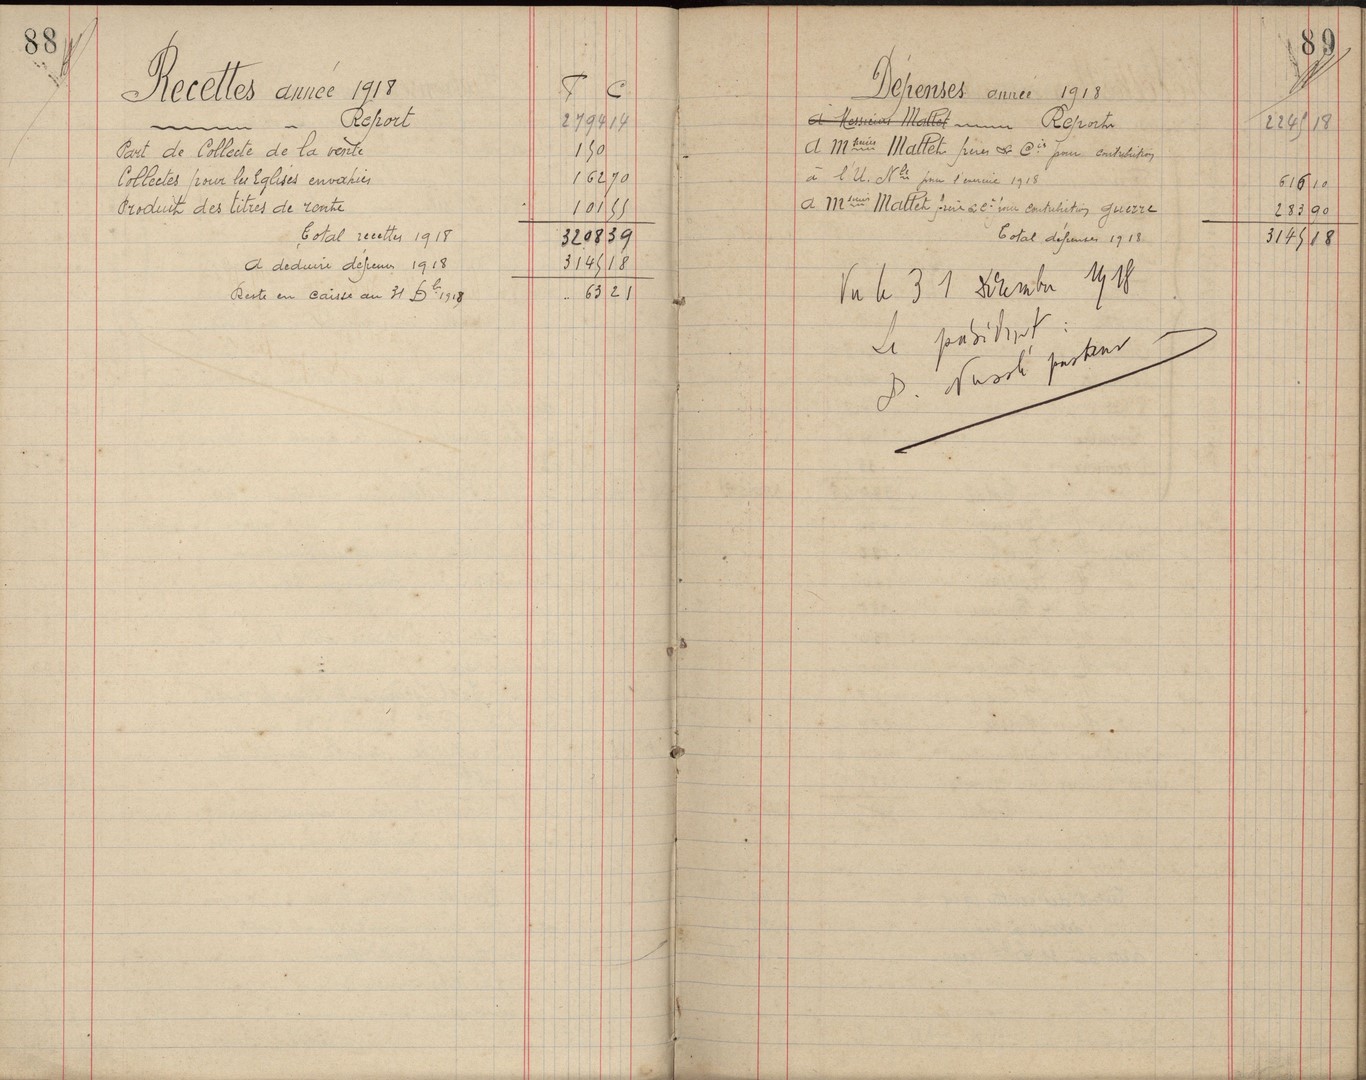 88
Recettes année 1918
F C
Report 2794 14
Part de Collecte de la vente 150
Collectes pour les Eglises envahies 162 70
Produit des titres de rente 101 55
Total recettes 1918 3208 39
A déduire dépenses 1918 3145 18
Reste en caisse au 31 Dbre 1918 63 21
89
Dépenses année 1918
à Messieurs Mallet Report 2245 18
à Messieurs Mallet frères & Cie pour contribution
à l'U. Nle pour l'exercice 1918 616 10
à Messieurs Mallet frères & Cie pour contribution guerre 283 90
Total dépenses 1918 3145 18
Vu le 31 décembre 1918
Le président :
D. pasteur